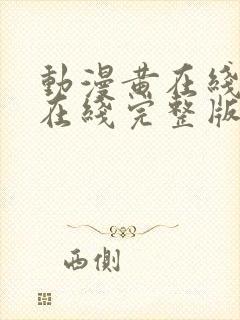 動漫黄在綫
在綫完整版
西側